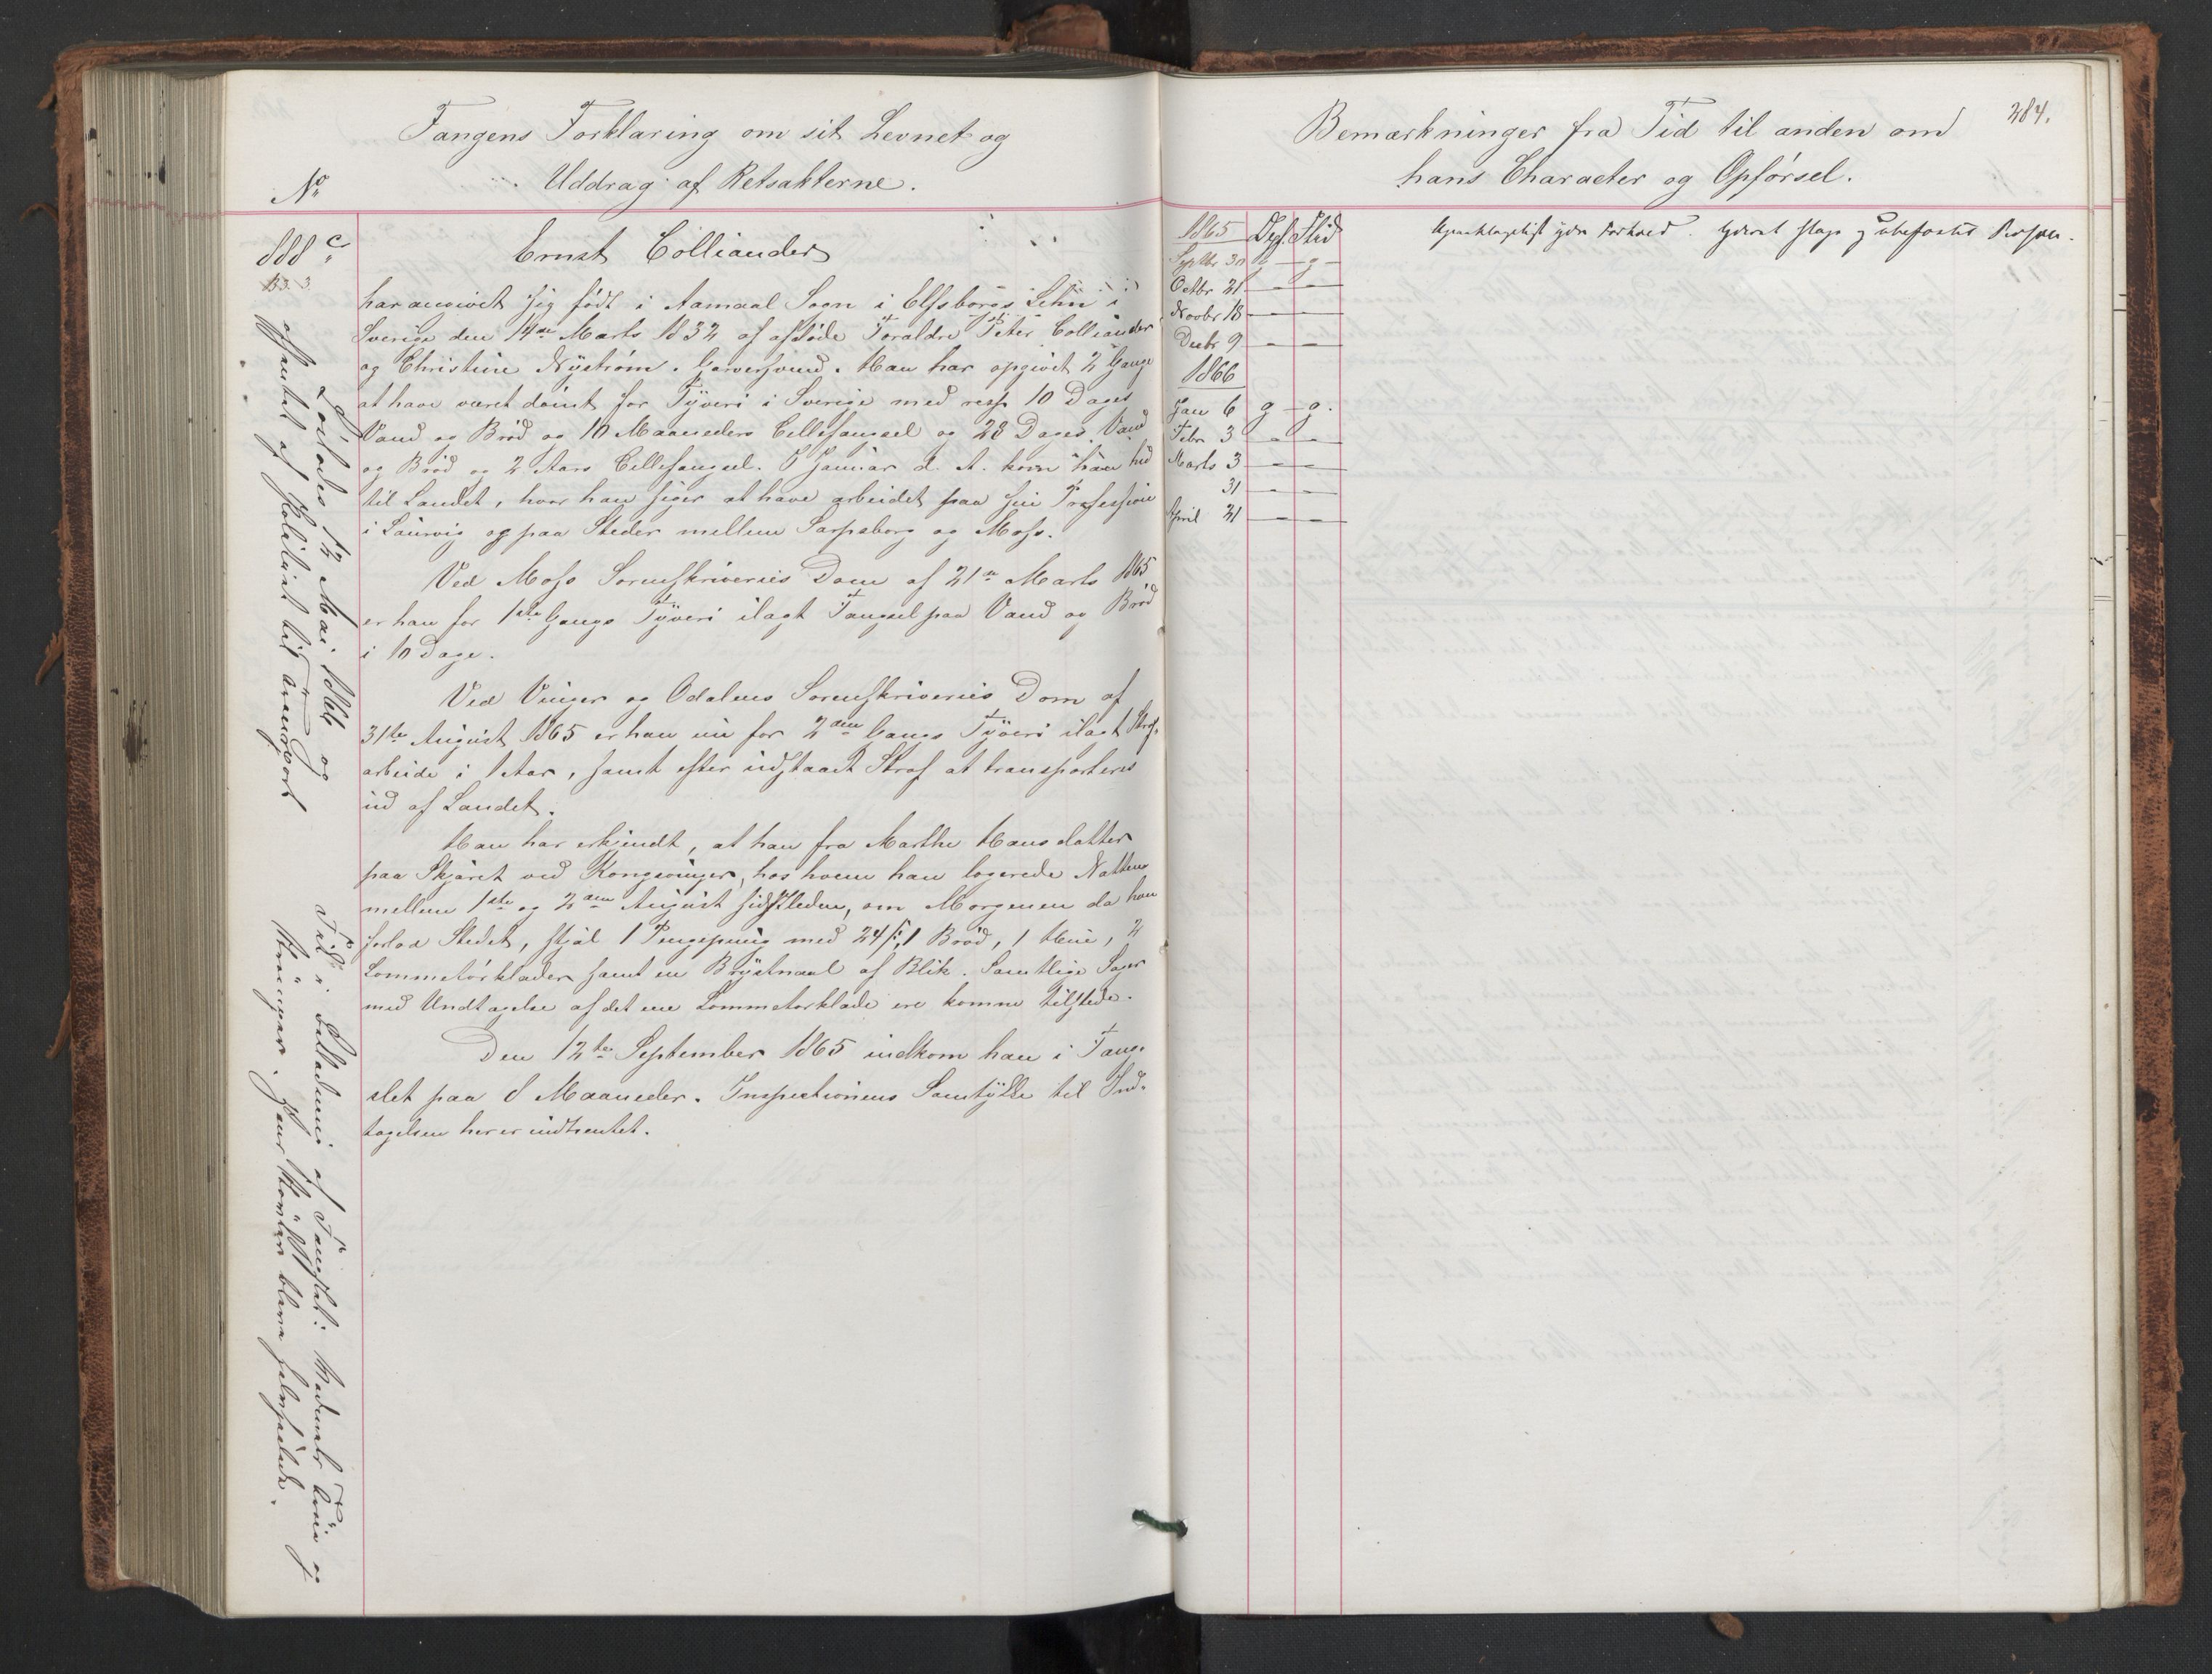 Fangens Forklaring om sit Levnet og
Uddrag af Retsakterne.
No
888 c.
B. 3. 3
Ernst Colliander
har angivet sig født i Aamaal Sogn i Elfsborgs Lehn i
Sverige den 14de Marts 1832 af afdøde Forældre Peter Colliander
og Christine Nystrøm. Garversvend. Han har opgivet 2 Gange
at have været dømt for Tyveri i Sverige med resp 10 Dages
Vand og Brød og 10 Maaneders Cellefængsel og 28 Dages Vand
og Brød og 2 Aars Cellefængsel. I Januar d. A. kom han hid
til Landet, hvor han siger at have arbeidet paa sin Profession
i Laurvig og paa Steder mellem Sarpsborg og Moss.
Ved Moss Sorenskriveries Dom af 21de Marts 1865
er han for 1ste Gangs Tyveri ilagt Fængsel paa Vand og Brød
i 10 Dage.
Ved Vinger og Odalens Sorenskriveries Dom af
31te August 1865 er han nu for 2den Gangs Tyveri ilagt Straf-
arbeide i 1 Aar, samt efter udstaaet Straf at transporteres
ud af Landet.
Han har erkjendt, at han fra Marthe Hansdatter
paa Skjæret ved Kongsvinger, hos hvem han logerede Natten
mellem 1ste og 2den August sidstleden, om Morgenen da han
forlod Stedet, stjal 1 Pengepung med 24 s, 1 Brød, 1 Hue, 2
Lommetørklæder samt en Brystnaal af Blik. Samtlige Sager
med Undtagelse af det ene Lommetørklæde ere komne tilstede.
Den 12te September 1865 indkom han i Fæng-
slet paa 8 Maaneder. Inspectionens Samtykke til Ind-
tagelsen her er indhentet.
Løslodes 12 Mai 1866 og
afhentet af Politiet til Transport
Tid i Belladuni af Fængslet:
Bemærkninger fra Tid til anden om
hans Character og Opførsel.
284.
1865 Opf. Flid
Septbr 30 g - g -
Octbr 21 - -
Novbr 18 - -
Decbr 9 - -
1866
Jan 6 g - g.
Febr 3 - -
Marts 3 - -
31 - -
April 21 - -
Upaaklageligt ydre Forhold. Yderst slap og ubefæstet Person.